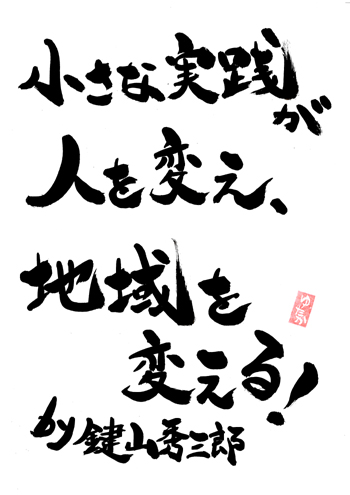 小さな実践が
人を変え、
地域を
変える!
by 鍵山秀三郎
ゆたか